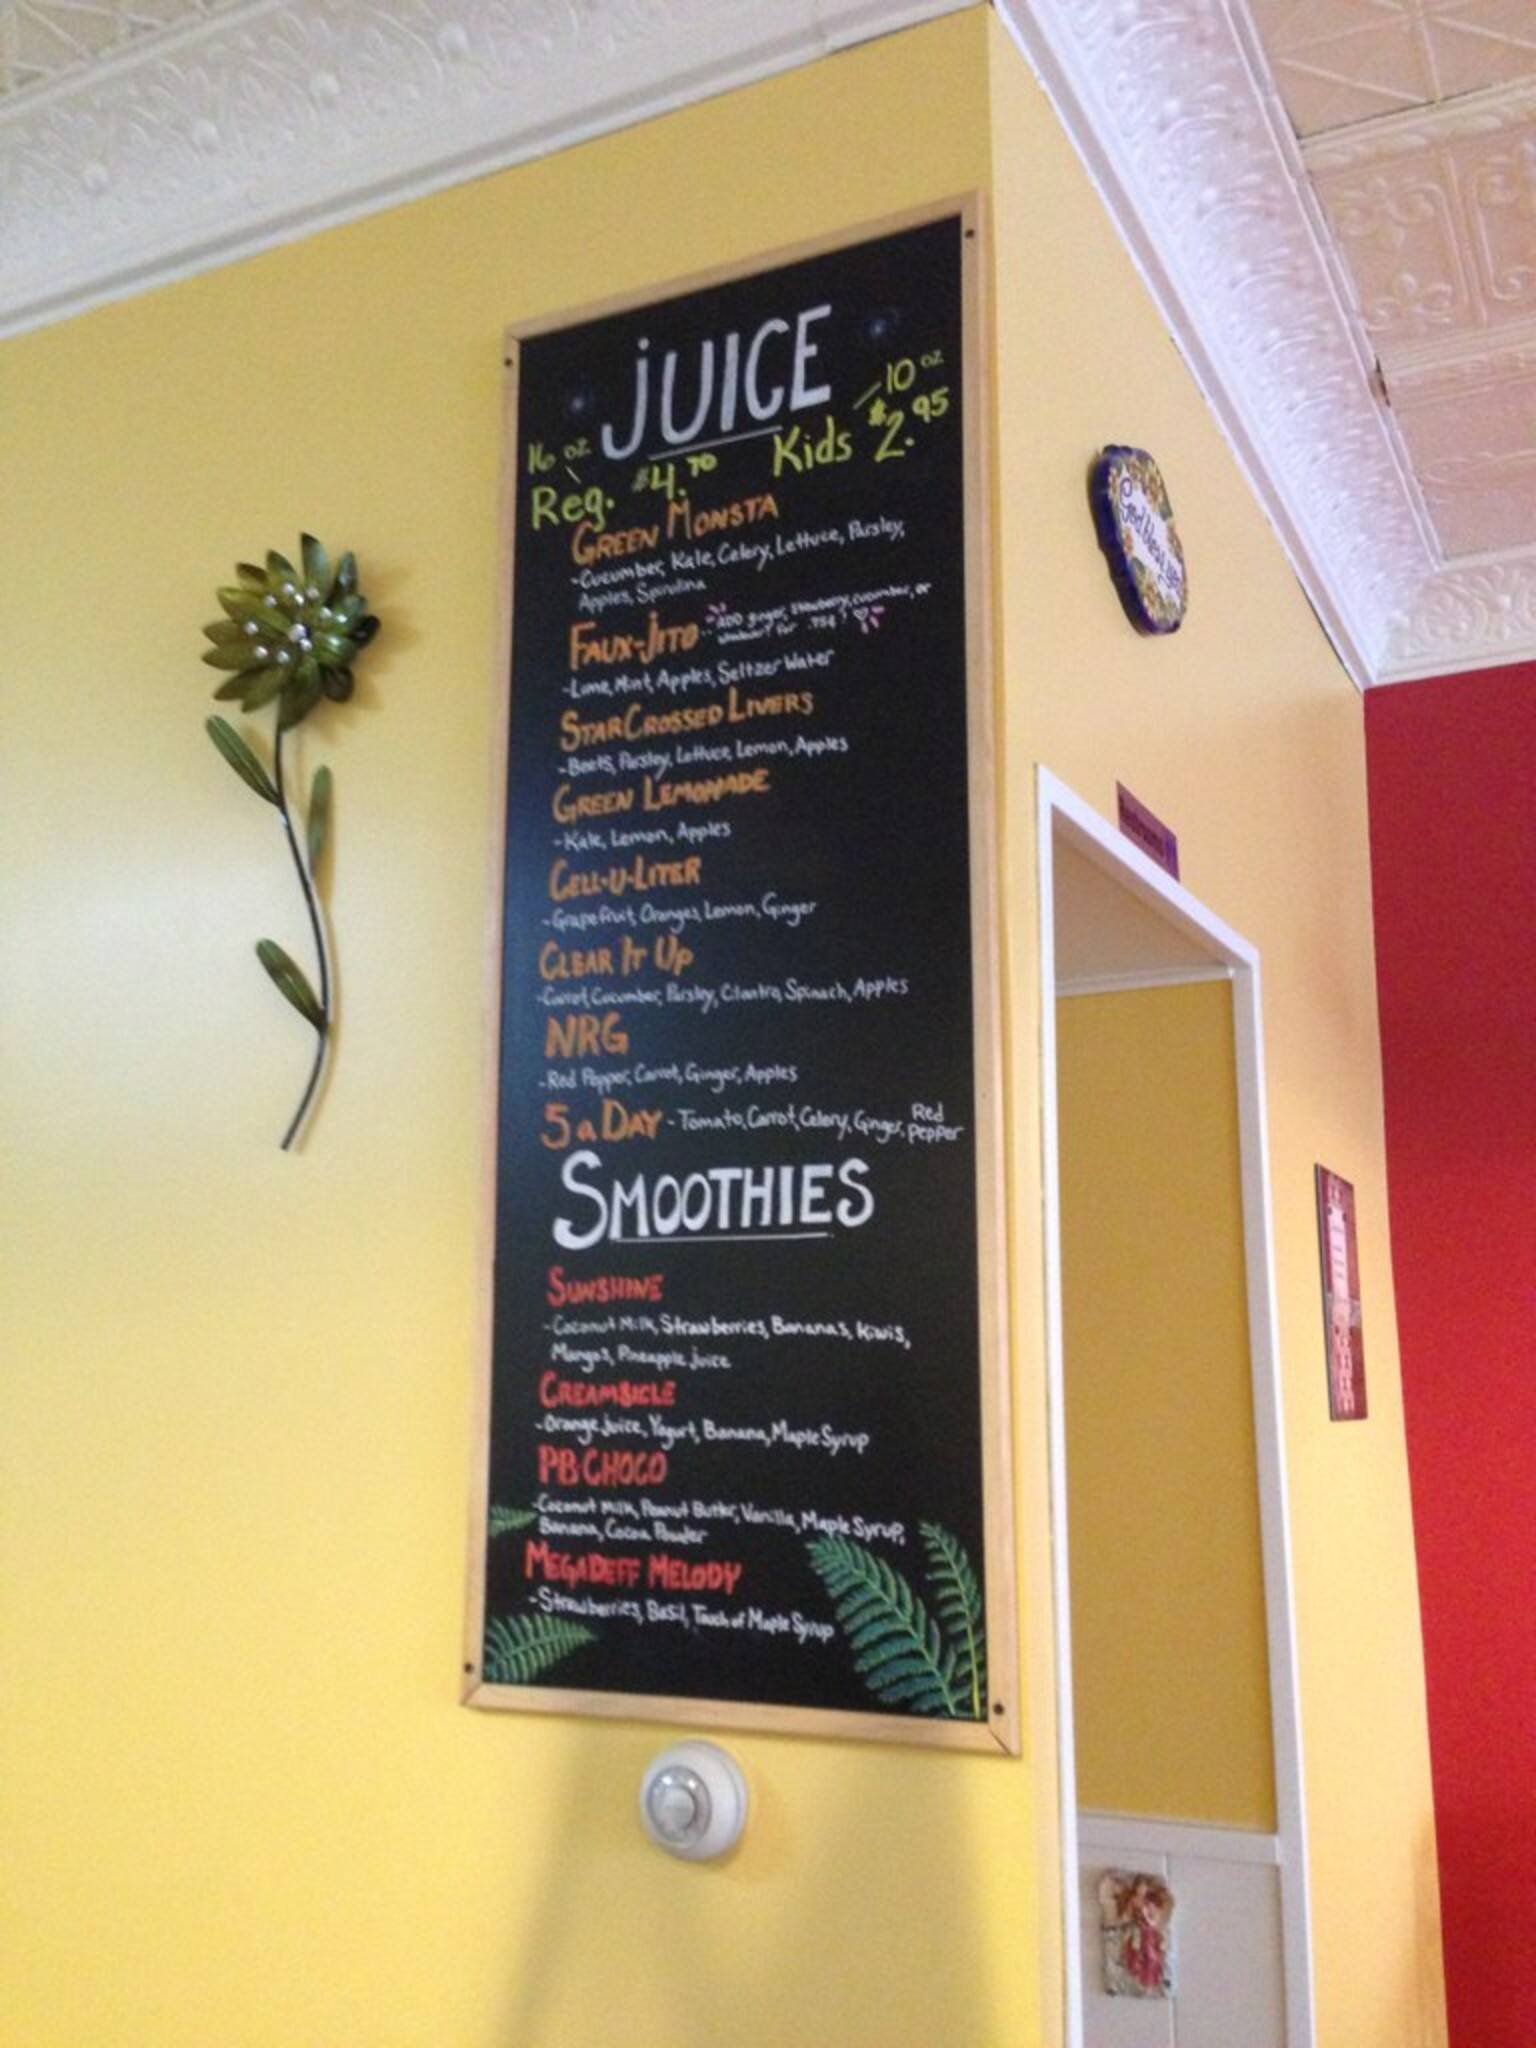 JUICE
16 oz Reg. $4.70
10 oz Kids $2.95
GREEN MONSTA
-Cucumber, Kale, Celery, Lettuce, Parsley,
Apples, Spirulina
FAUX-JITO -ADD ginger, strawberry, cucumber, or
for .75¢!
-Lime, Mint, Apples, Seltzer Water
STARCROSSED LIVERS
-Beets, Parsley, Lettuce, Lemon, Apples
GREEN LEMONADE
-Kale, Lemon, Apples
CELL-U-LITER
-Grapefruit, Oranges, Lemon, Ginger
CLEAR IT UP
-Carrot, Cucumber, Parsley, Cilantro, Spinach, Apples
NRG
-Red Pepper, Carrot, Ginger, Apples
5 a DAY - Tomato, Carrot, Celery, Ginger, Red Pepper
SMOOTHIES
SUNSHINE
-Coconut Milk, Strawberries, Bananas, Kiwis,
Mangos, Pineapple juice
CREAMSICLE
-Orange juice, Yogurt, Banana, Maple Syrup
PB CHOCO
-Coconut Milk, Peanut Butter, Vanilla, Maple Syrup,
Banana, Cocoa Powder
MEGADEFF MELODY
-Strawberries, Basil, Touch of Maple Syrup